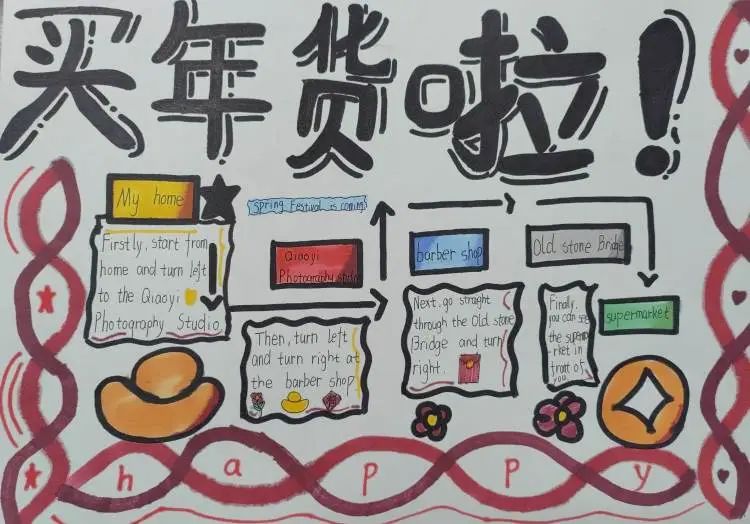 买年货啦!
My home
Spring Festival is coming!
Firstly, start from
home and turn left
to the Qiaoyi
Photography Studio
Qiaoyi
Photography studio
barber shop
Old stone Bridge
Then, turn left
and turn right at
the barber shop
Next, go straght
through the Old stone
Bridge and turn
right.
Finally,
you can see
the superma
-rket in
front of
you.
supermarket
happy